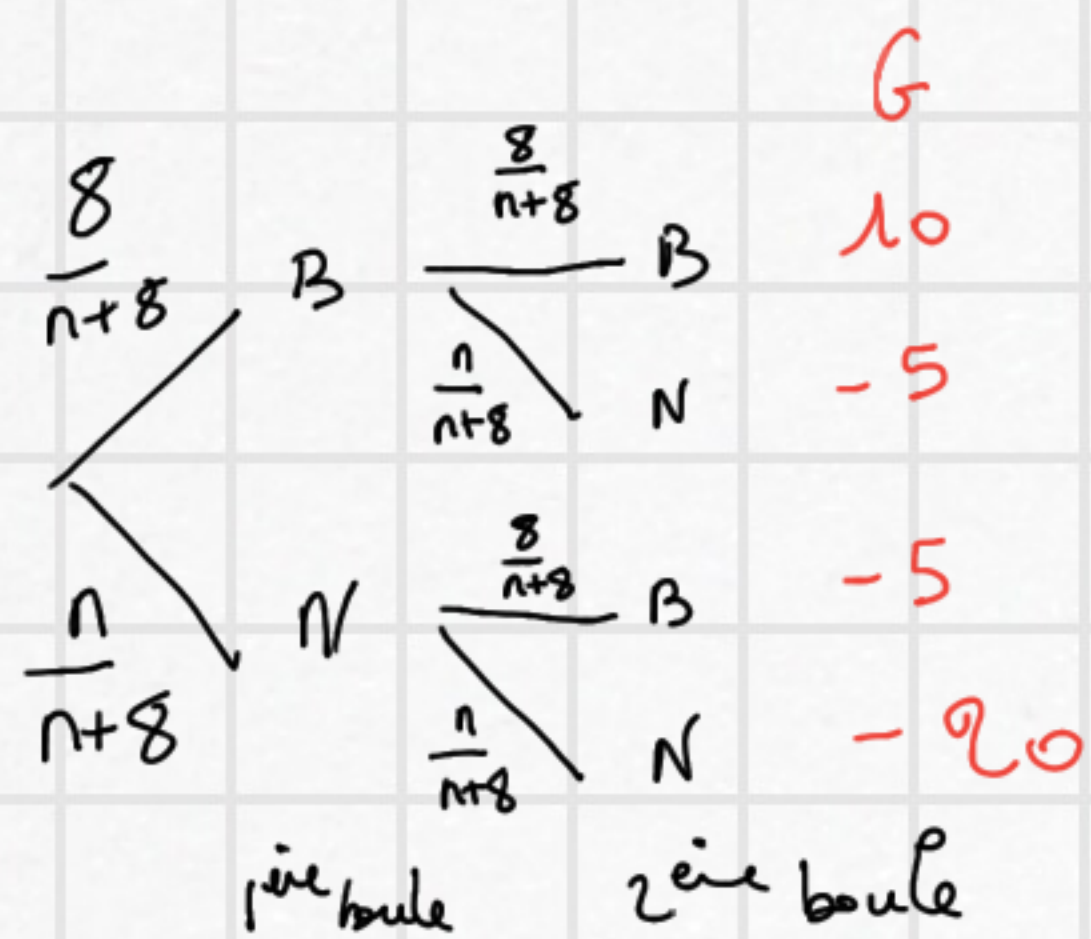 G
8/(n+8) B 8/(n+8) B 10
n/(n+8) N -5
n/(n+8) N 8/(n+8) B -5
n/(n+8) N -20
1ère boule 2ème boule